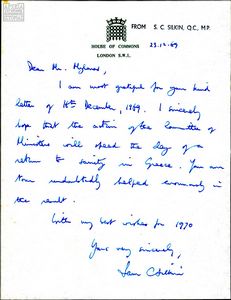 FROM S. C. SILKIN, Q.C., M.P.
HOUSE OF COMMONS
LONDON S.W.1.
23.12.69
Dear Mr.
I am most grateful for your kind
letter of 18th December, 1969. I sincerely
hope that the action of the Committee of
Ministers will speed the day of a
return to sanity in Greece. You
have undoubtedly helped enormously in
the result.
With my best wishes for 1970
Yours very sincerely,
Sam C Silkin